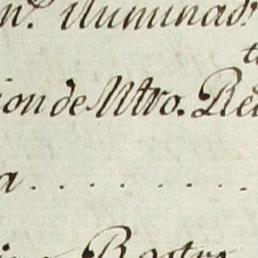 n.º iluminad.º
t
ion de Ntro. Re
a . . . . . . . . . .
Rostro